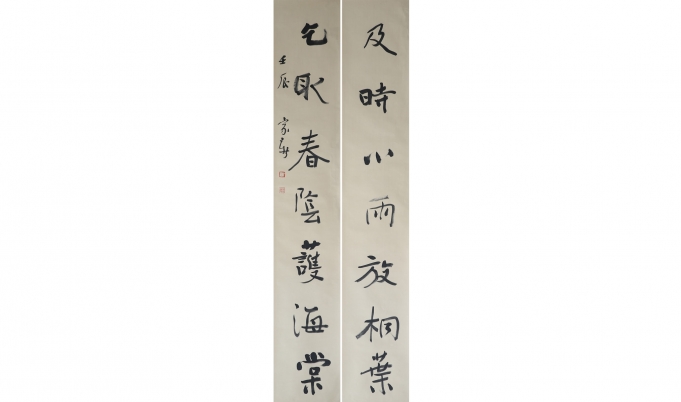 及時小雨放桐葉
乞取春陰蔭海棠
壬辰